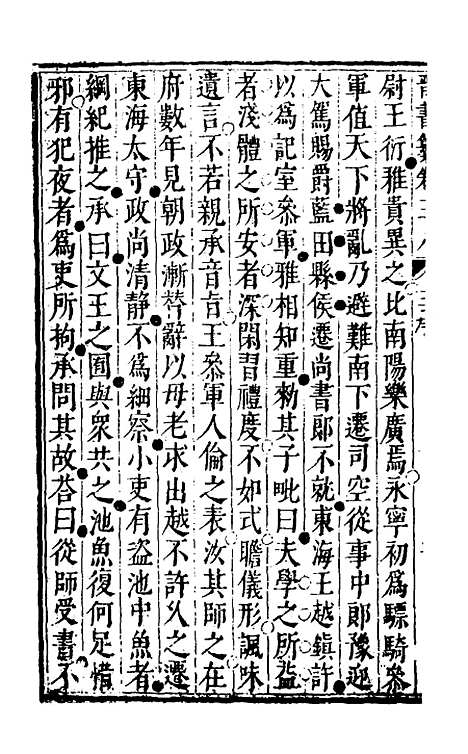 尉王衍雅貴異之比南陽樂廣焉永寧初爲驃騎參
軍值天下將亂乃避難南下遷司空從事中郎豫迎
大駕賜爵藍田縣侯遷尚書郎不就東海王越鎮許
以爲記室參軍雅相知重勑其子毗曰夫學之所益
者淺體之所安者深閑習禮度不如式瞻儀形諷味
遺言不若親承音旨王參軍人倫之表汝其師之在
府數年見朝政漸替辭以母老求出越不許久之遷
東海太守政尚清静不爲細察小吏有盜池中魚者
綱紀推之承曰文王之囿與衆共之池魚復何足惜
邪有犯夜者爲吏所拘承問其故荅曰從師受書不